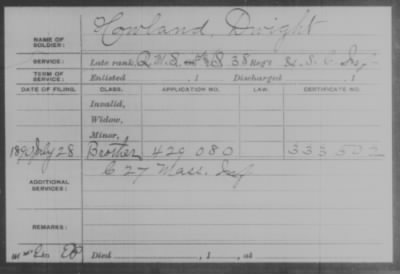 NAME OF SOLDIER: Howland, Dwight
SERVICE: Late rank, Q M S 38 Reg't U. S. C. Inf
TERM OF SERVICE: Enlisted , 1 Discharged , 1
DATE OF FILING. CLASS. APPLICATION NO. LAW. CERTIFICATE NO.
Invalid,
Widow,
Minor,
July 28 Brother 429 080
ADDITIONAL SERVICES: C 27 Mass. Inf
REMARKS:
Died , 1 , at